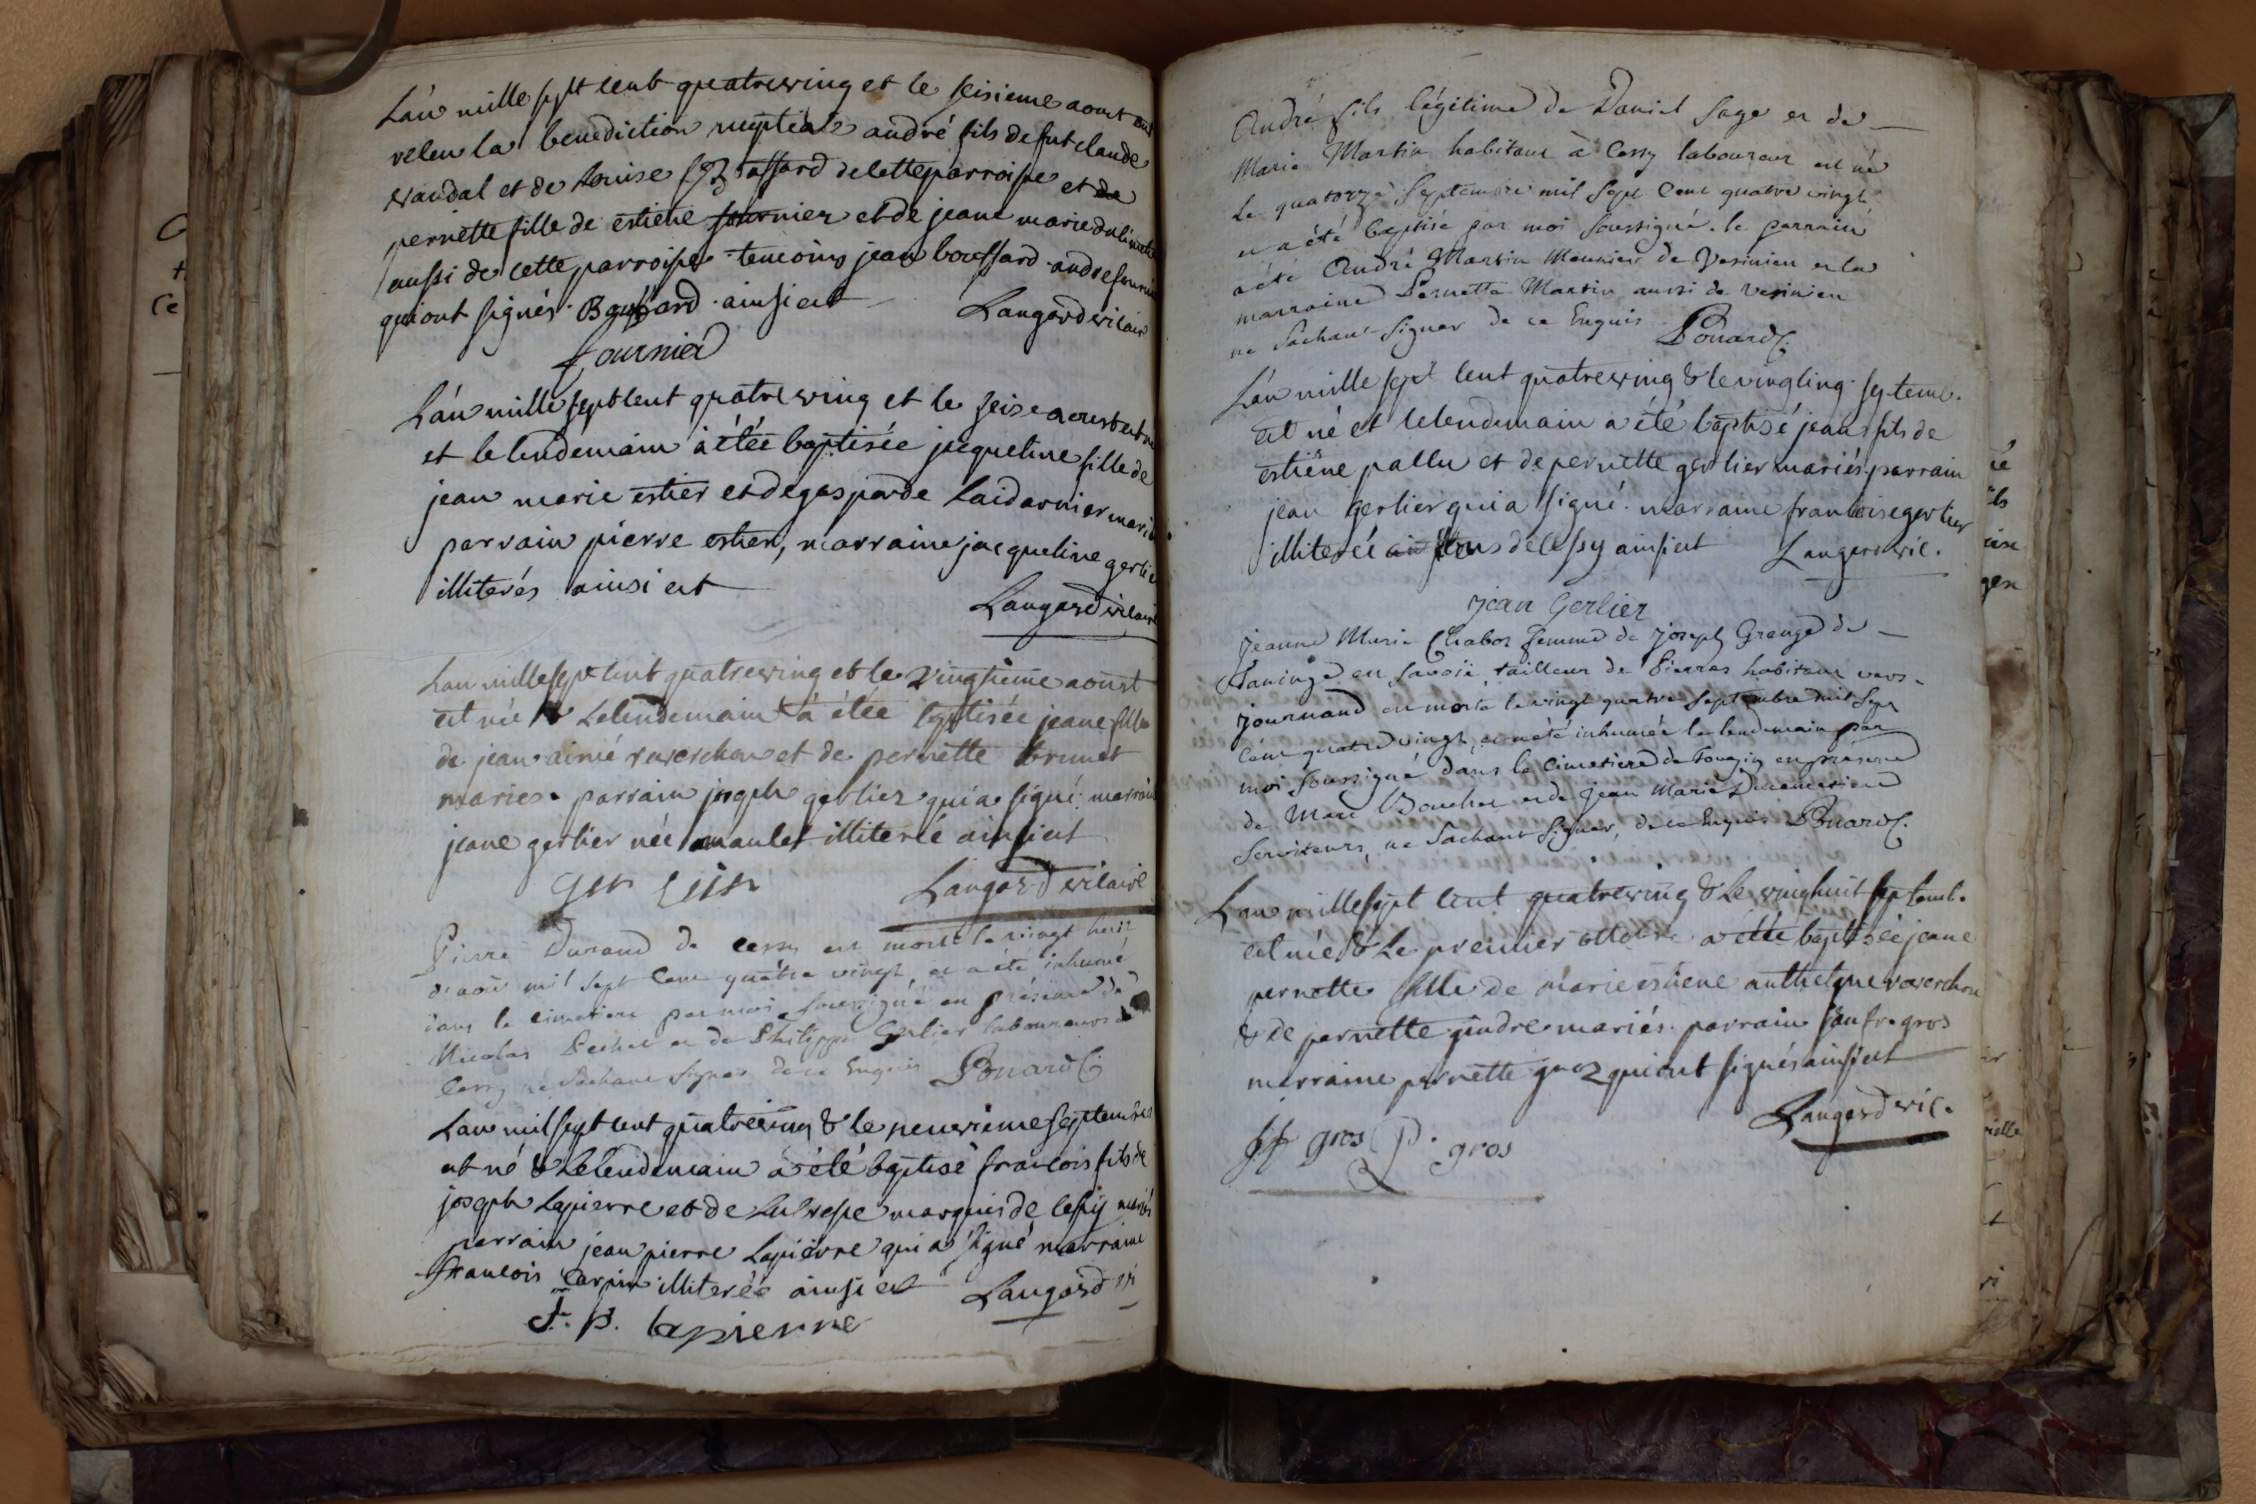 L'an mille sept cent quatreving et le seisieme aoust ont
releu la benediction nuptiale andré fils de fut claude
vandal et de Louise de cette parroisse et de
pernette fille de estiene fournier et de jeane marie
aussi de cette parroisse temoins jean boussard andre fournier
qui ont signés Boussard ainsi est Langard vicaire
fournier
L'an mille sept cent quatreving et le seise aoust est née
et le lendemain a étée baptisée jacqueline fille de
jean marie estier et de gasparde mariés
parrain pierre estier, marraine jacqueline gerlier
illiterés ainsi est
Langard vicaire
L'an mille sept cent quatreving et le vingtieme aoust
est née & le lendemain a étée baptisée jeane fille
de jean aimé raverchon et de pernette brunet
mariés parrain joseph gerlier qui a signé marraine
jeane gerlier née maulet illiterée ainsi est
Langard vicaire
Pierre Durand de cessy est mort le vingt huit
d'aout mil sept cent quatre vingt, et a été inhumé
dans le cimetiere par moi soussigné en présence de
Nicolas Pechet et de Philippe Gerlier laboureurs à
Cessy ne sachant signer de ce Enquis Ponard C.
L'an mil sept cent quatreving & le neuvieme septembre
est né & le lendemain a été baptisé francois fils de
joseph Lapierre et de marquis de cessy mariés
parrain jean pierre Lapierre qui a signé marraine
francois carpin illiterée ainsi est Langard vi
J. p. lapierre
André fils légitime de Daniel Sage et de
Marie Martin habitant à Cessy laboureur est né
le quatorze Septembre mil sept cent quatre vingt
et a été baptisé par moi soussigné. le parrain
a été André Martin Meunier de Vesinien et la
marraine Pernette Martin aussi de Vesinien
ne sachant signer de ce Enquis Ponard C.
L'an mille sept cent quatreving & le vingt cinq septemb.
est né et le lendemain a été baptisé jean fils de
estiène pallu et de pernette gerlier mariés parrain
jean gerlier qui a signé. marraine francoise gerlier
illiterée tous de cessy ainsi est Langard vic.
jean Gerlier
Jeanne Marie Chabor femme de joseph Grange de
Taninge en Savoie, tailleur de Pierres habitant vers
journand est morte le vingt quatre septembre mil sept
cent quatre vingt, et a été inhumée le lendemain par
moi soussigné dans le cimetiere de Tougin en présence
de Marc Bouchet et de jean Marie
serviteurs, ne sachant signer, de ce Enquis Ponard C.
L'an mille sept cent quatreving & le vinghuit septemb.
est née & le premier ottobre a étée baptisée jeane
pernette fille de marie estiene anthelme raverchon
& de pernette gindre mariés parrain jan fr. gros
marraine pernette groz qui ont signés ainsi est
Langard vic.
jf gros P. gros